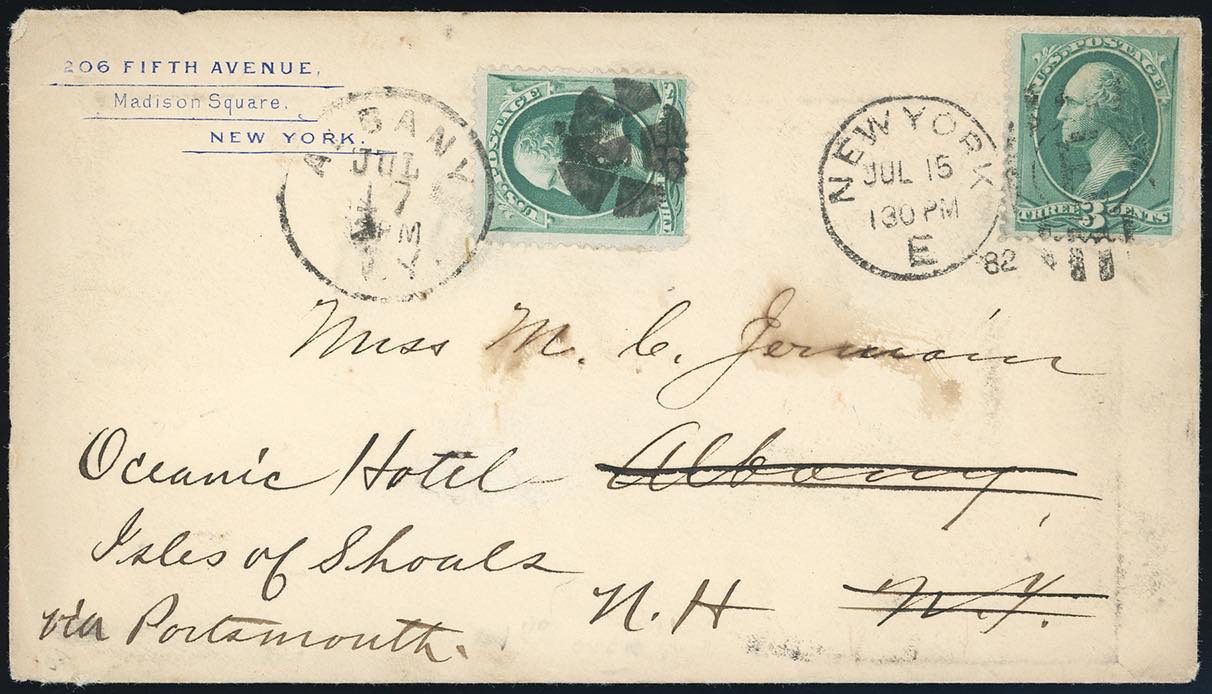 206 FIFTH AVENUE,
Madison Square.
NEW YORK.
ALBANY
JUL
17
PM
N.Y.
U.S. POSTAGE
NEW YORK
JUL 15
130 PM
E
82
U.S. POSTAGE
THREE 3 CENTS
Miss M. C. Jermain
Oceanic Hotel Albany
Isles of Shoals
N. H N.Y.
via Portsmouth.